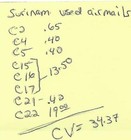 Surinam used airmails
C2 .65
C4 .40
C5 .40
C15
C16 13.50
C17
C21 - .42
C22 19.00
CV = 34.37